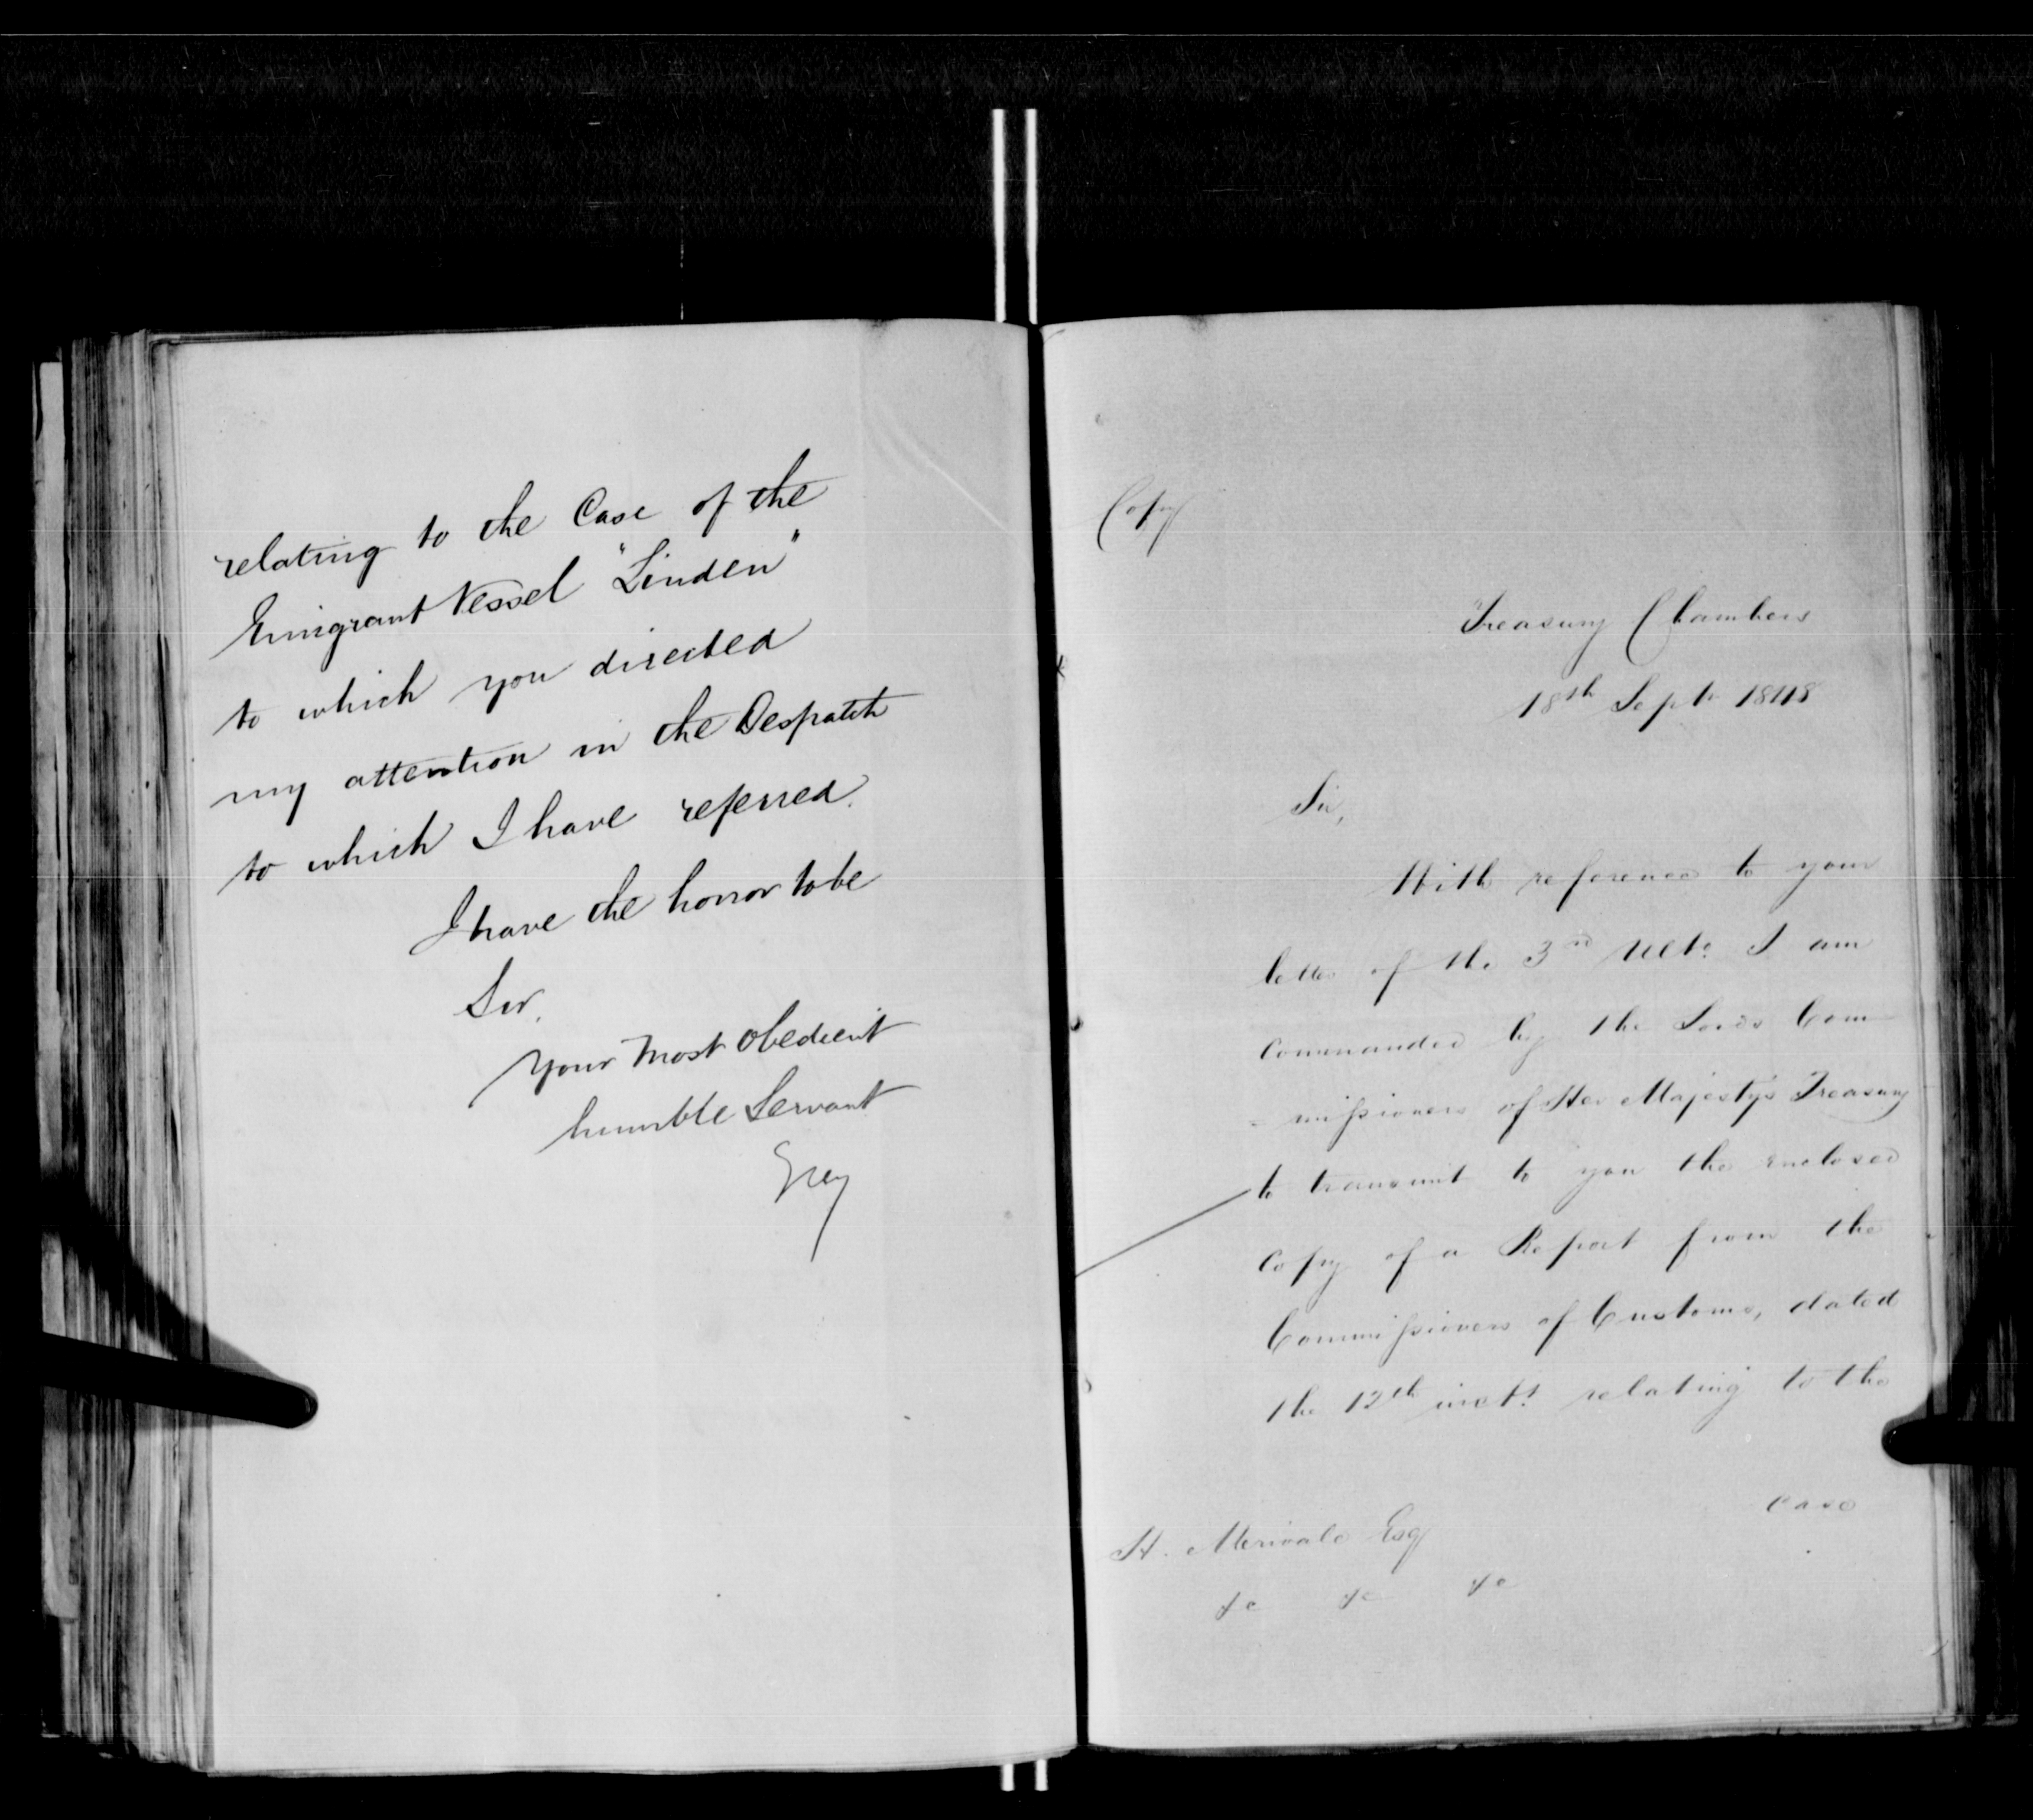 relating to the Case of the
Emigrant Vessel "Linden"
to which you directed
my attention in the Despatch
to which I have referred.
I have the honor to be
Sir.
Your Most Obedient
humble Servant
Grey
Copy
Treasury Chambers
18th Septr 1848
Sir,
With reference to your
letter of the 3rd Ulto. I am
commanded by the Lords Com
-missioners of Her Majesty's Treasury
to transmit to you the enclosed
Copy of a Report from the
Commissioners of Customs, dated
the 12th inst. relating to the
case
H. Merivale Esq
&c &c &c